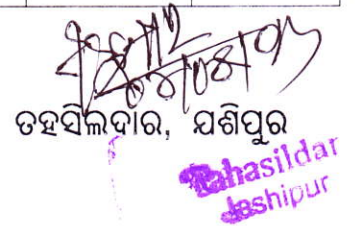 ତହସିଲଦାର, ଯଶିପୁର
Tahasildar
Jashipur